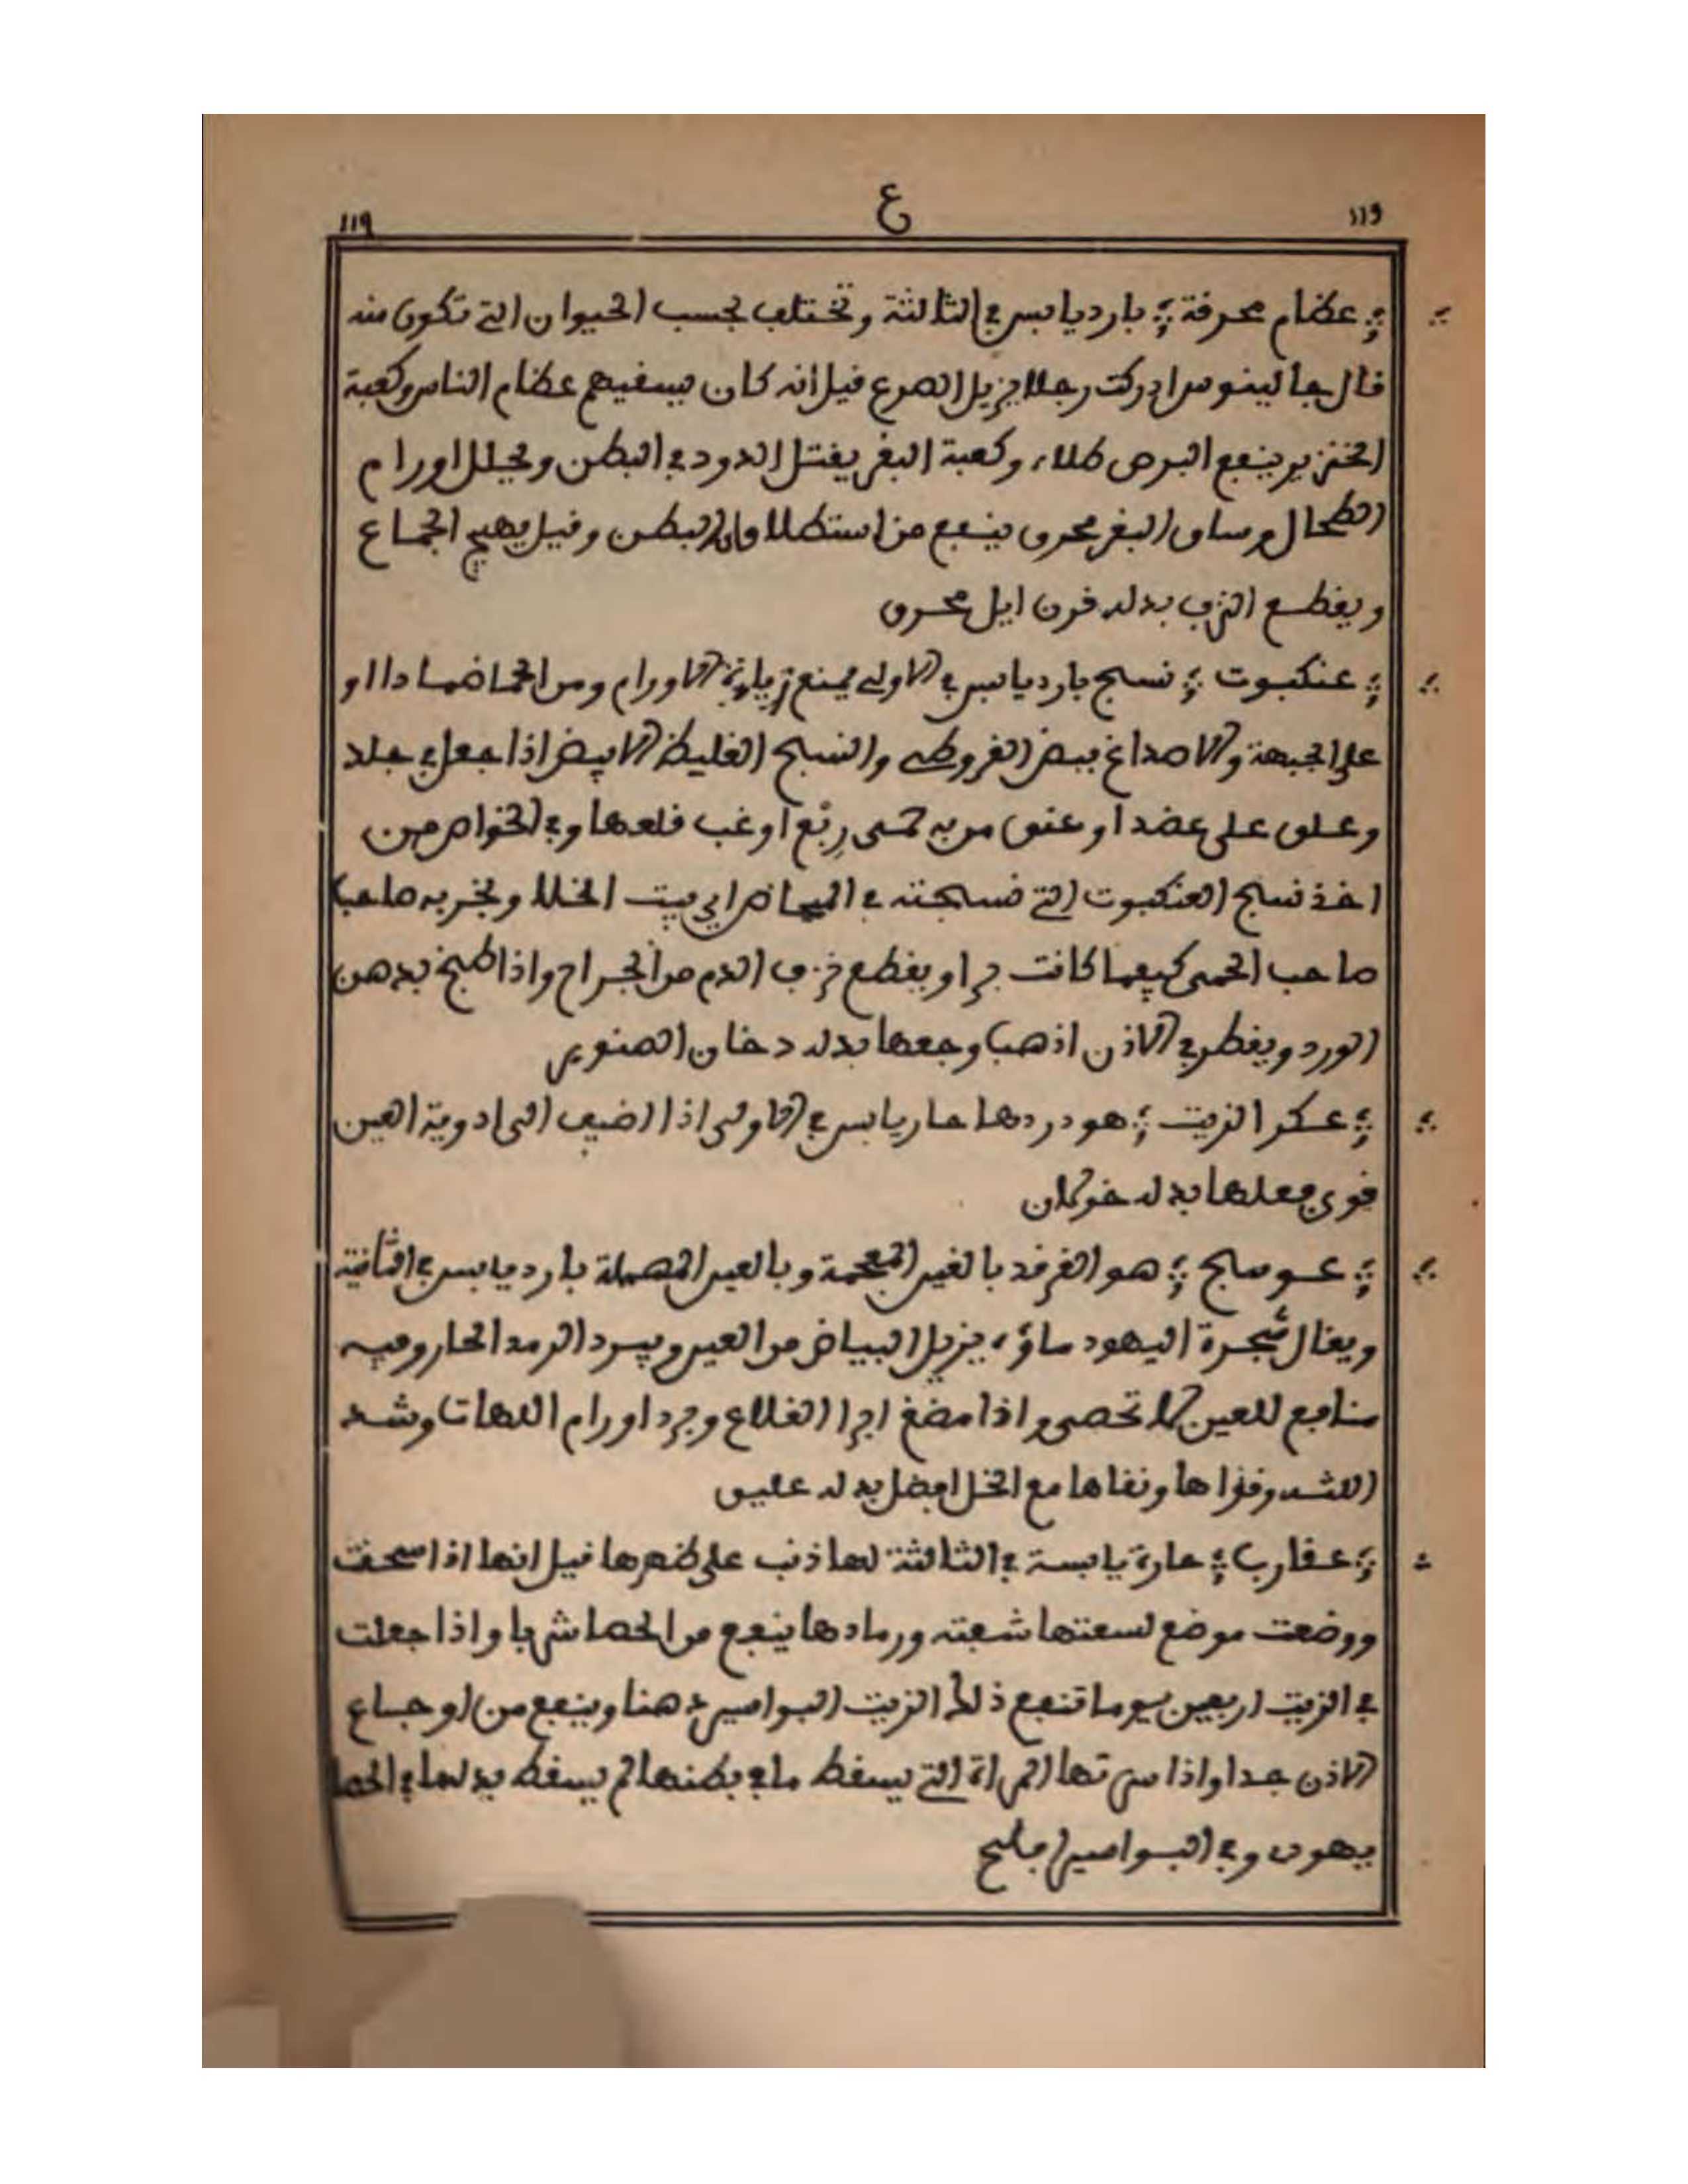 ١١٩ ع 119
عظام محرقة بارد يابس في الثالثة وتختلف بحسب الحيوان التي تكون منه
قال جالينوس ادركت رجلا يزيل الصرع قيل انه كان يسقيهم عظام الناس وكعبة
الخنزير ينفع البرص طلاء وكعبة البقر يقتل الدود في البطن ويحلل اورام
الطحال وساق البقر محرق ينفع من استطلاق البطن وقيل يهيج الجماع
ويقطع النزف بدله قرن ايل محرق
عنكبوت نسج بارد يابس في الاولى يمنع زيادة الاورام ومن الحما ضمادا او
على الجبهة والاصداغ ببعض القروطى والنسج الغليظ الابيض اذا جعل في جلد
وعلق على عضد او عنق من به حمى ربع او غب قلعها وفي الخواص من
اخذ نسج العنكبوت التي نسجته في بيت الخلا وبخر به صاحبا
صاحب الحمى كيفما كانت برا ويقطع نزف الدم من الجراح واذا طبخ بدهن
الورد ويقطر في الاذن اذهب وجعها بدله دخان الصنوبر
عكر الزيت هو دردها حار يابس في الاولى اذا اضيف الى ادوية العين
قوي فعلها بدله خولان
عوسج هو الغرقد بالغين المعجمة وبالعين المهملة بارد يابس في الثانية
ويقال شجرة اليهود ماؤه يزيل البياض من العين ويبرد الرمد الحار وفيه
منافع للعين لا تحصى واذا مضغ ابرا القلاع وبرد اورام اللهات وشد
اللثة وقواها ونقاها مع الخل افضل بدله عليق
عقارب حارة يابسة في الثالثة لها ذنب على ظهرها قيل انها اذا سحقت
ووضعت موضع لسعتها شفته ورمادها ينفع من الحصا شربا واذا جعلت
في الزيت اربعين يوما تنفع ذلك الزيت البواسير دهنا وينفع من اوجاع
الاذن جدا واذا المراة التي يسقط ما في بطنها لم يسقط بدلها في الحصا
يهودي وفي البواسير